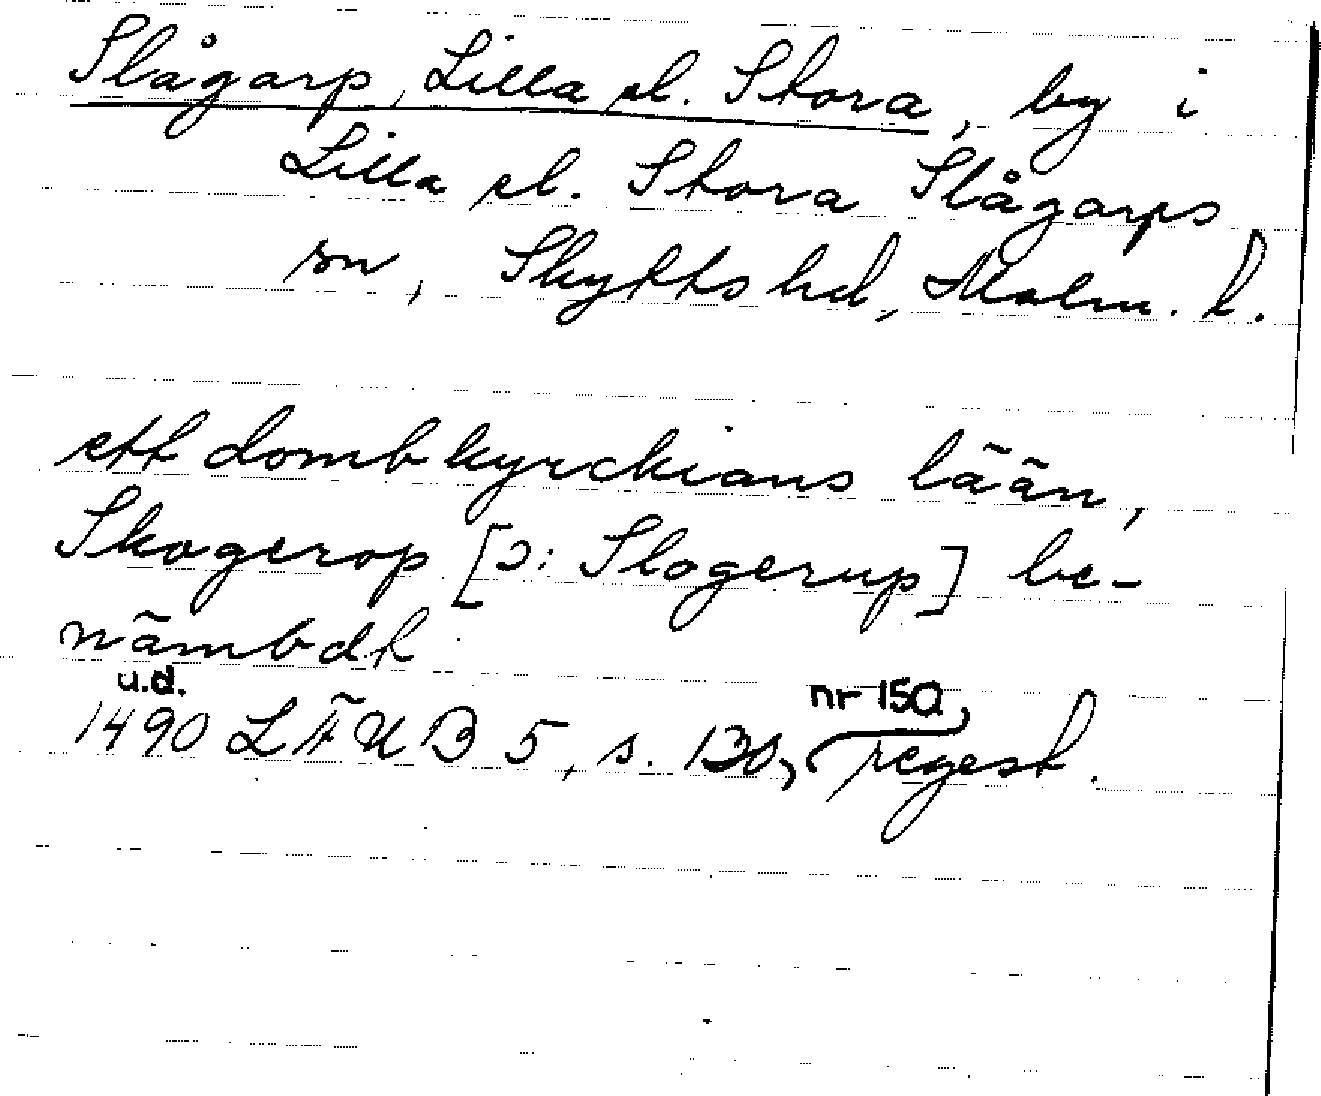 Slågarp, Lilla el. Stora, by i
Lilla el. Stora Slågarps
sn, Skytts hd, Malm. l.
ett dombkyrckians lään,
Skogerop [ɔ: Slogerup] be-
nämbdt
u.d. nr 150,
1490 LÄUB 5, s. 130, regest.